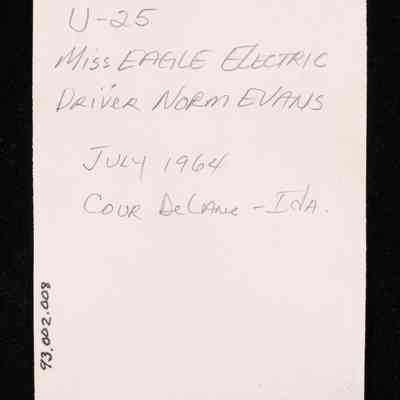 U-25
Miss EAGLE ELECTRIC
DRIVER NORM EVANS
JULY 1964
COUR DeLANE - IdA.
93.002.008